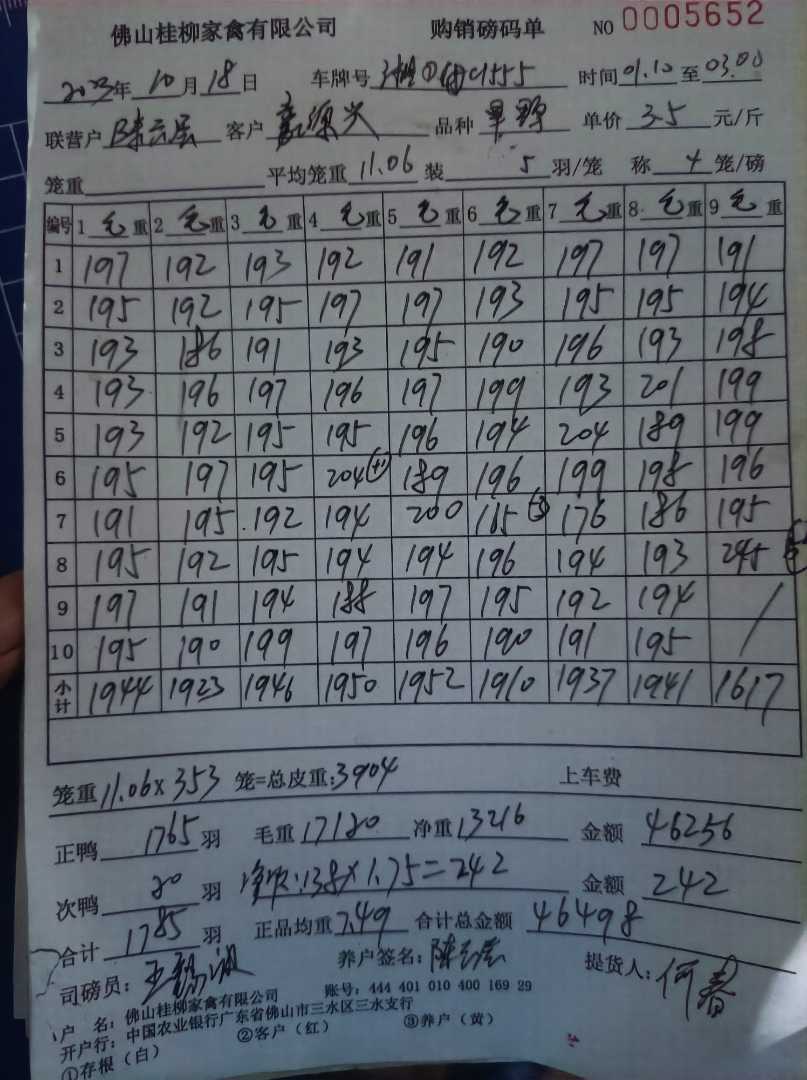 佛山桂柳家禽有限公司 购销磅码单 NO 0005652
2023年 10月18日 车牌号 1555 时间 01.10 至 03.00
联营户 陈云层 客户 源兴 品种 单价 3.5 元/斤
笼重 平均笼重 11.06 装 5 羽/笼 称 4 笼/磅
编号 1 毛 重 2 毛 重 3 毛 重 4 毛 重 5 毛 重 6 毛 重 7 毛 重 8 毛 重 9 毛 重
1 197 192 193 192 191 192 197 197 191
2 195 192 195 197 197 193 195 195 194
3 193 186 191 193 195 190 196 193 198
4 193 196 197 196 197 199 193 201 199
5 193 192 195 195 196 194 204 189 199
6 195 197 195 204 (+1) 189 196 199 198 196
7 191 195 192 194 200 165 176 186 195
8 195 192 195 194 194 196 194 193 245
9 197 191 194 188 197 195 192 194 /
10 195 190 199 197 196 190 191 195 /
小计 1944 1923 1946 1950 1952 1910 1937 1941 1617
笼重 11.06×353 笼=总皮重:3904 上车费
正鸭 1765 羽 毛重 17120 净重 13216 金额 46256
次鸭 20 羽 净次:138×1.75=242 金额 242
合计 1785 羽 正品均重 7.49 合计总金额 46498
司磅员: 王 养户签名: 陈云层 提货人: 何春
户 名: 佛山桂柳家禽有限公司 账号: 444 401 010 400 169 29
开户行: 中国农业银行广东省佛山市三水区三水支行
①存根（白） ②客户（红） ③养户（黄）